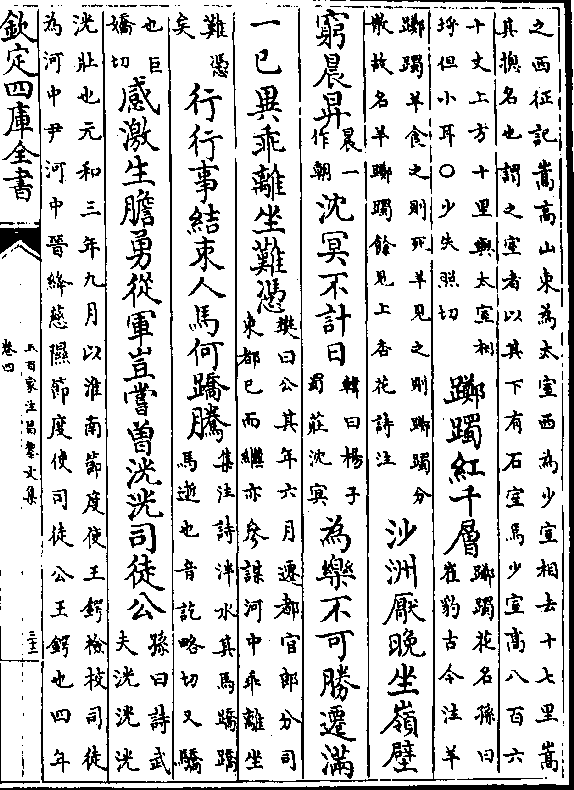 之西征記嵩高山東為太室西為少室相去十七里嵩
其摠名也謂之室者以其下有石室焉少室高八百六
十丈上方十里與太室相
埒但小耳○少失照切
躑躅紅千層
躑躅花名孫曰
崔豹古今注羊
躑躅羊食之則死羊見之則躑躅分
散故名羊躑躅餘見上杏花詩注
沙洲厭晚坐嶺壁
窮晨昇
晨一
作朝
沈冥不計日
韓曰楊子
蜀莊沈冥
為樂不可勝遷滿
一已異乖離坐難憑
樊曰公其年六月遷都官郎分司
東都已而繼亦參謀河中乖離坐
難憑
矣
行行事結束人馬何蹻騰
集注詩泮水其馬蹻蹻
馬遊也音訖略切又驕
也巨
嬌切
感激生膽勇從軍豈嘗曽洸洸司徒公
孫曰詩武
夫洸洸洸
洸壯也元和三年九月以淮南節度使王鍔檢校司徒
為河中尹河中晉絳慈隰節度使司徒公王鍔也四年
欽定四庫全書
五百家注昌黎文集
卷四